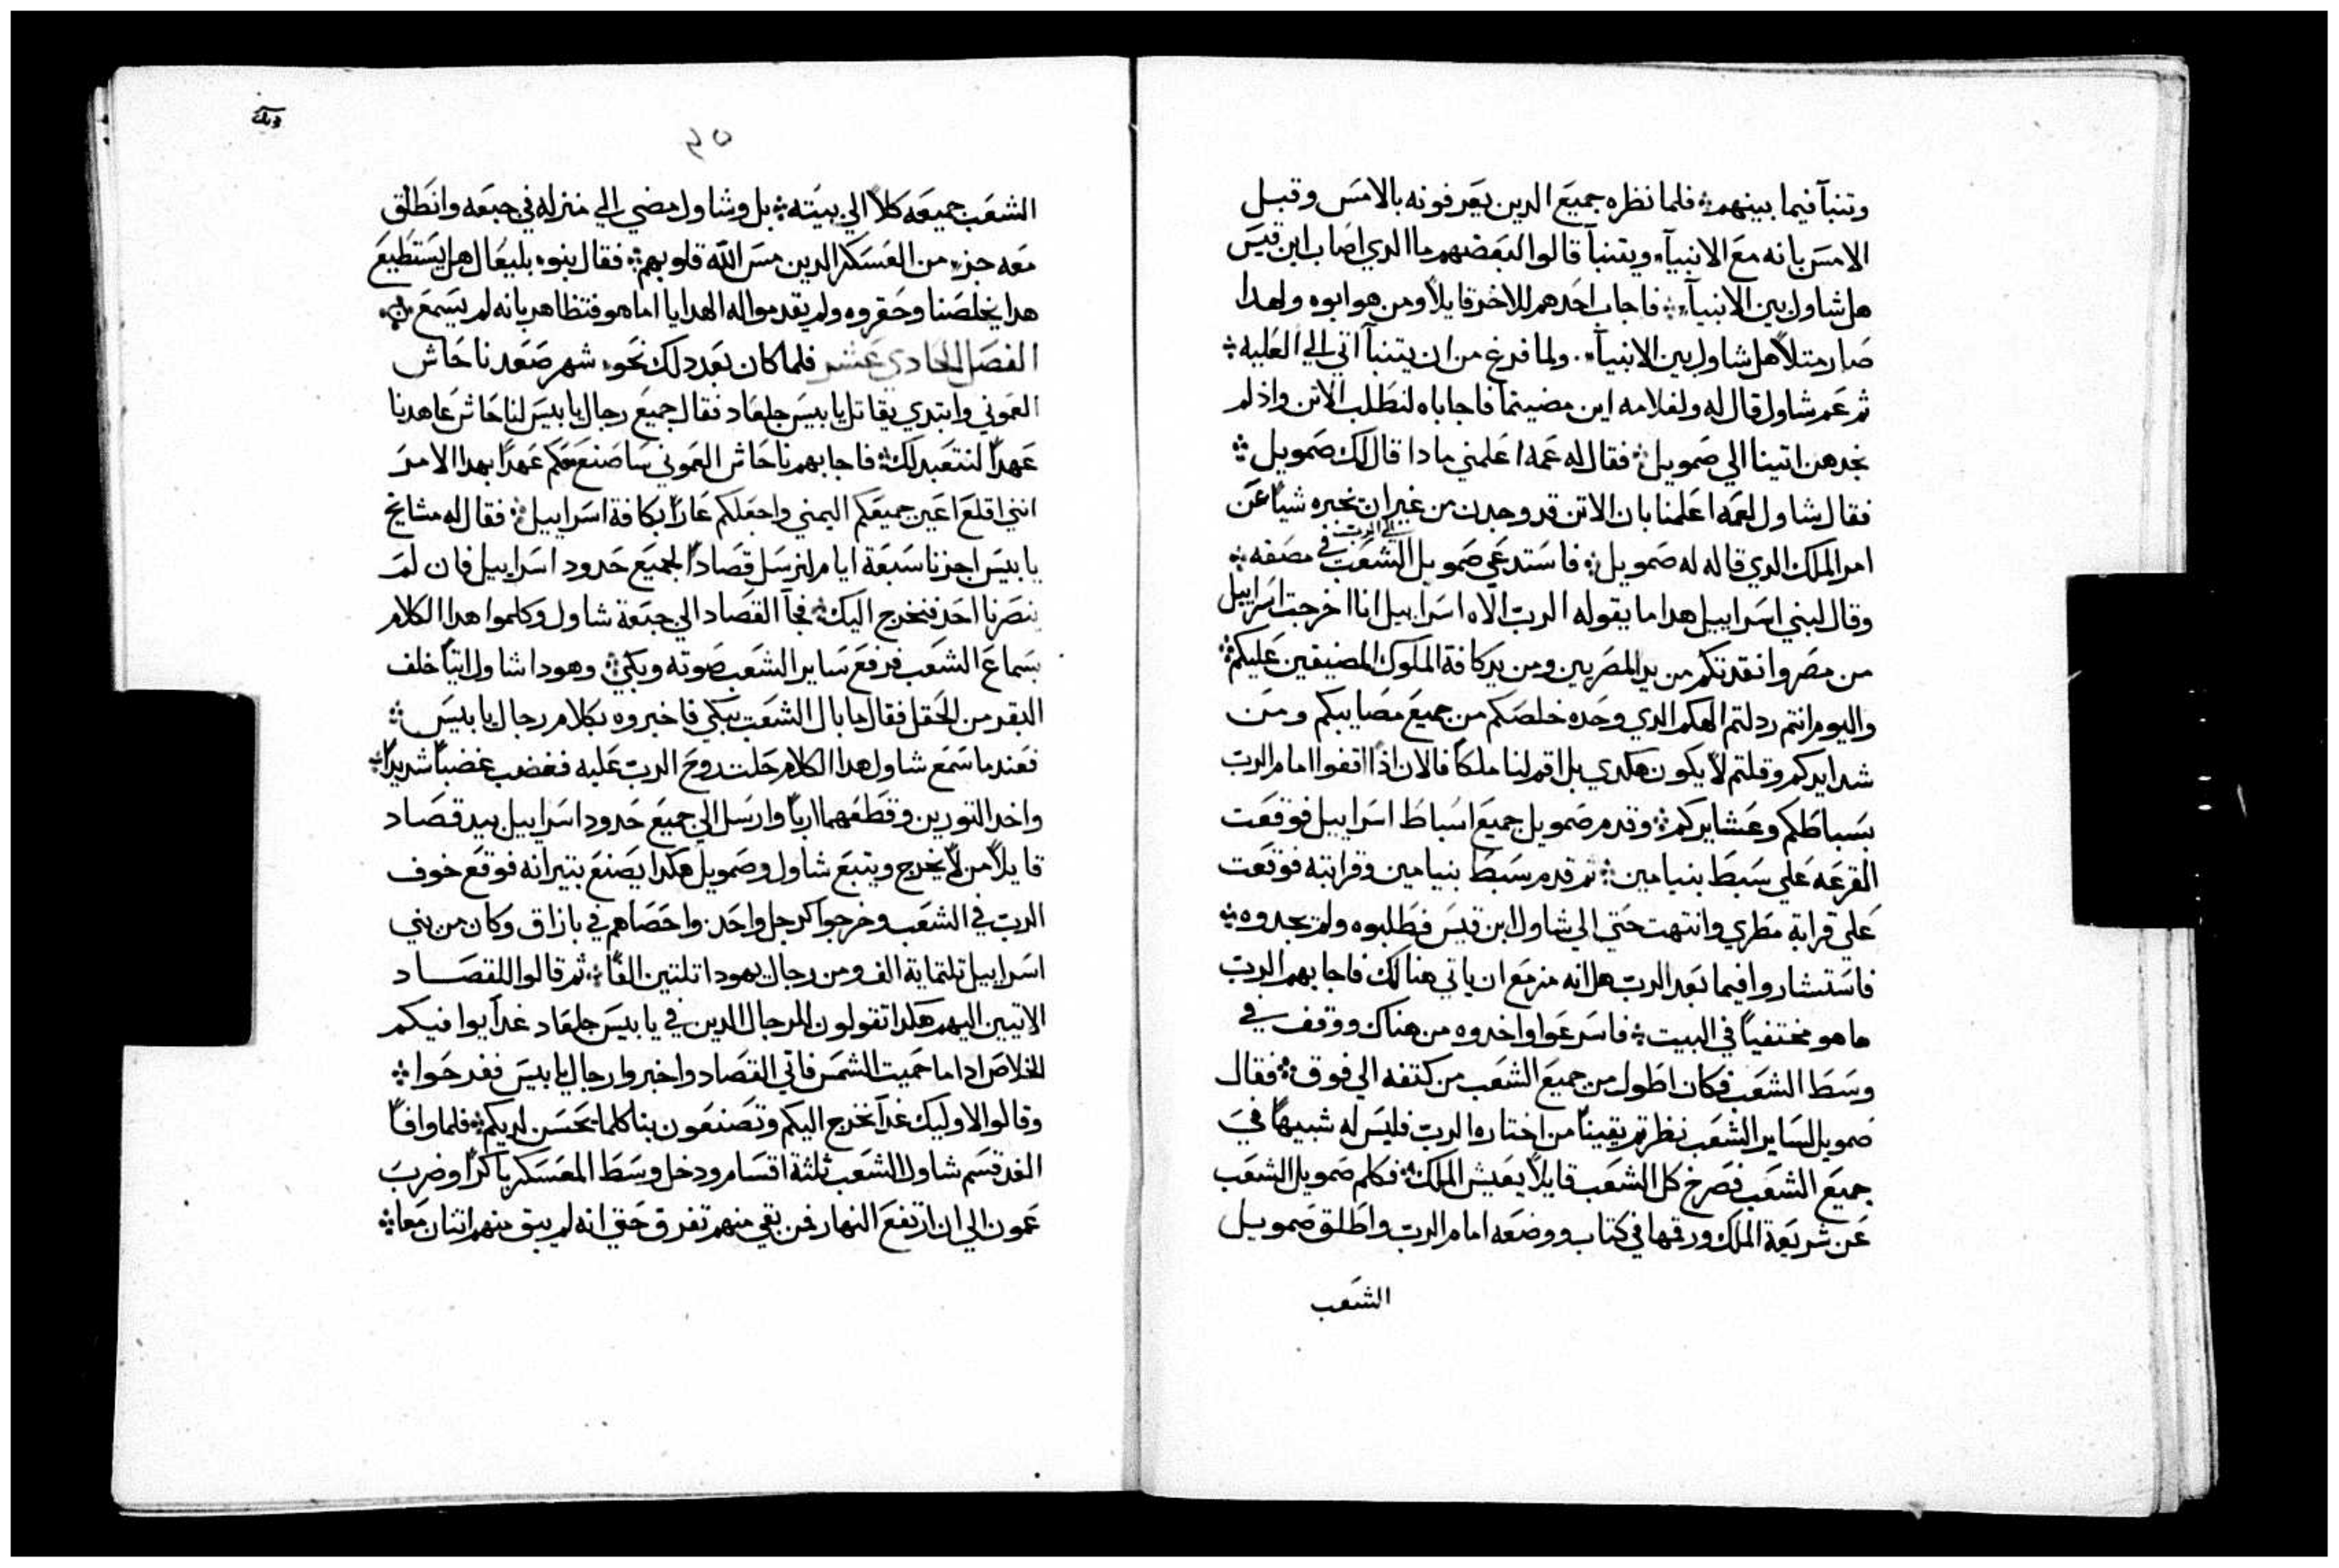 وتنبآ فيما بينهم ܀ فلما نظره جميع الدين يعرفونه بالامس وقبل
الامس بانه مع الانبيآء ويتنبآ قالوا لبعضهم ما الدي اصاب ابن قيس
هل شاول بين الانبيآء ܀ فاجاب احدهم للاخر قايلاً ومن هو ابوه ولهدا
صار متلاً هل شاول بين الانبيآء ܀ ولما فرغ من ان يتنبآ اتي الي العليه ܀
تم عم شاول قال له ولغلامه اين مضيتما فاجاباه لنطلب الاتن واذ لم
نجدهن اتينا الي صمويل ܀ فقال له عمه اعلمني مادا قال لك صمويل ܀
فقال شاول لعمه اعلمنا بان الاتن قد وجدن من غير ان نخبره شياً عن
امر الملك الدي قاله له صمويل ܀ فاستدعي صمويل الشعب الي الرب في مصفه ܀
وقال لبني اسراييل هدا ما يقوله الرب الاه اسراييل انا اخرجت اسراييل
من مصر وانقدتكم من يد المصريين ومن يد كافة الملوك المضيقين عليكم ܀
واليوم انتم ردلتم الهكم الدي وحده خلصكم من جميع مصايبكم ومن
شدايدكم وقلتم لا يكون هكدي بل اقم لنا ملكاً فالان اذاً اقفوا امام الرب
بسباطكم وعشايركم ܀ وقدم صمويل جميع اسباط اسراييل فوقعت
القرعه علي سبط بنيامين ܀ تم قدم سبط بنيامين وقرابته فوقعت
علي قرابة مطري وانتهت حتي الي شاول ابن قيس فطلبوه ولم يجدوه ܀
فاستشاروا فيما بعد الرب هل انه مزمع ان ياتي هنالك فاجابهم الرب
ها هو مختفياً في البيت ܀ فاسرعوا واخدوه من هناك ووقف في
وسط الشعب فكان اطول من جميع الشعب من كتفه الي فوق ܀ فقال
صمويل لساير الشعب نظرتم يقيناً من اختاره الرب فليس له شبيهاً في
جميع الشعب فصرخ كل الشعب قايلاً يعيش الملك ܀ فكلم صمويل الشعب
عن شريعة الملك ورقمها في كتاب ووضعه امام الرب واطلق صمويل
الشعب
٤٥
الشعب جميعه كلاً الي بيته ܀ بل وشاول مضي الي منزله في جبعه وانطلق
معه جزء من العسكر الدين مس الله قلوبهم ܀ فقال بنوه بليعال هل يستطيع
هدا يخلصنا وحقروه ولم يقدموا له الهدايا اما هو فتظاهر بانه لم يسمع ܀
الفصل الحادي عشر فلما كان بعد دلك نحو شهر صعد ناحاش
العموني وابتدي يقاتل يابيس جلعاد فقال جميع رجال يابيس لناحاش عاهدنا
عهداً لنتعبد لك ܀ فاجابهم ناحاش العموني ساصنع معكم عهداً بهدا الامر
انني اقلع اعين جميعكم اليمني واجعلكم عاراً بكافة اسراييل ܀ فقال له مشايخ
يابيس اجزنا سبعة ايام لنرسل قصاداً لجميع حدود اسراييل فان لم
ينصرنا احد فنخرج اليك ܀ فجآ القصاد الي جبعة شاول وكلموا هدا الكلام
بسماع الشعب فرفع ساير الشعب صوته وبكي ܀ وهودا شاول اتياً خلف
البقر من الحقل فقال ما بال الشعب يبكي فاخبروه بكلام رجال يابيس ܀
فعند ما سمع شاول هدا الكلام حلت روح الرب عليه فغضب غضباً شديداً ܀
واخد التورين وقطعهما ارباً وارسل الي جميع حدود اسراييل بيد قصاد
قايلاً من لا يخرج ويتبع شاول وصمويل هكدا يصنع بتيرانه فوقع خوف
الرب في الشعب وخرجوا كرجل واحد ܀ واحصاهم في بازاق وكان من بني
اسراييل تلتماية الف ومن رجال يهودا تلتين الفاً ܀ تم قالوا للقصاد
الاتيين اليهم هكدا تقولون للرجال الدين في يابيس جلعاد غداً يوافيكم
الخلاص ادا ما حميت الشمس فاتي القصاد واخبروا رجال يابيس ففرحوا ܀
وقالوا لاوليك غداً نخرج اليكم وتصنعون بنا كلما يحسن لديكم ܀ فلما وافاً
الغد قسم شاول الشعب ثلثة اقسام ودخل وسط المعسكر باكراً وضرب
عمون الي ان ارتفع النهار فمن بقي منهم تفرق حتي انه لم يبق منهم اتنان معاً ܀